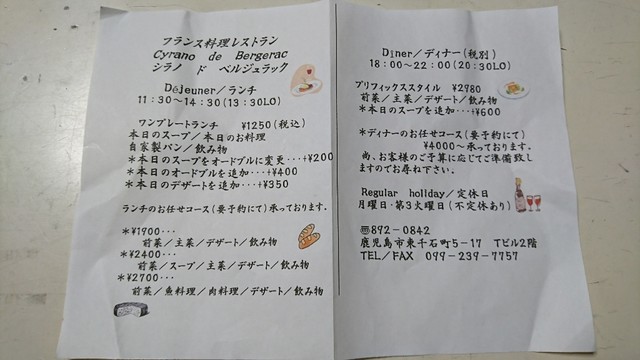 フランス料理レストラン
Cyrano de Bergerac
シラノ ド ベルジュラック
Déjeuner／ランチ
11：30～14：30(13：30LO)
ワンプレートランチ ¥1250(税込)
本日のスープ／本日のお料理
自家製パン／飲み物
＊本日のスープをオードブルに変更・・・+¥200
＊本日のオードブルを追加・・・+¥400
＊本日のデザートを追加・・・+¥350
ランチのお任せコース(要予約にて)承っております。
＊¥1900・・・
前菜／主菜／デザート／飲み物
＊¥2400・・・
前菜／スープ／主菜／デザート／飲み物
＊¥2700・・・
前菜／魚料理／肉料理／デザート／飲み物
Dîner／ディナー(税別)
18：00～22：00(20：30LO)
プリフィックススタイル ¥2980
前菜／主菜／デザート／飲み物
＊本日のスープを追加・・・+¥600
＊ディナーのお任せコース(要予約にて)
¥4000～承っております。
尚、お客様のご予算に応じてご準備致し
ますのでお尋ね下さい。
Regular holiday／定休日
月曜日・第3火曜日(不定休あり)
〠892-0842
鹿児島市東千石町5-17 Tビル2階
TEL／FAX 099-239-7757